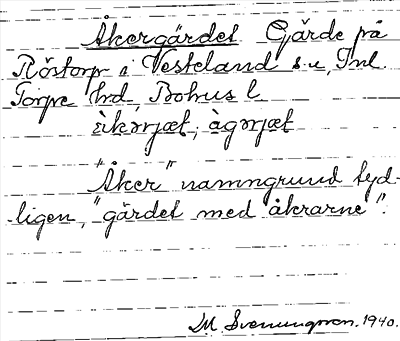 Åkergärdet Gärde på
Röstorp i Vesteland s.u, Inl.
Torpe hd, Bohus l.
"Åker" namngrund tyd-
ligen, "gärdet med åkrarne".
M. Svenungsson. 1940.